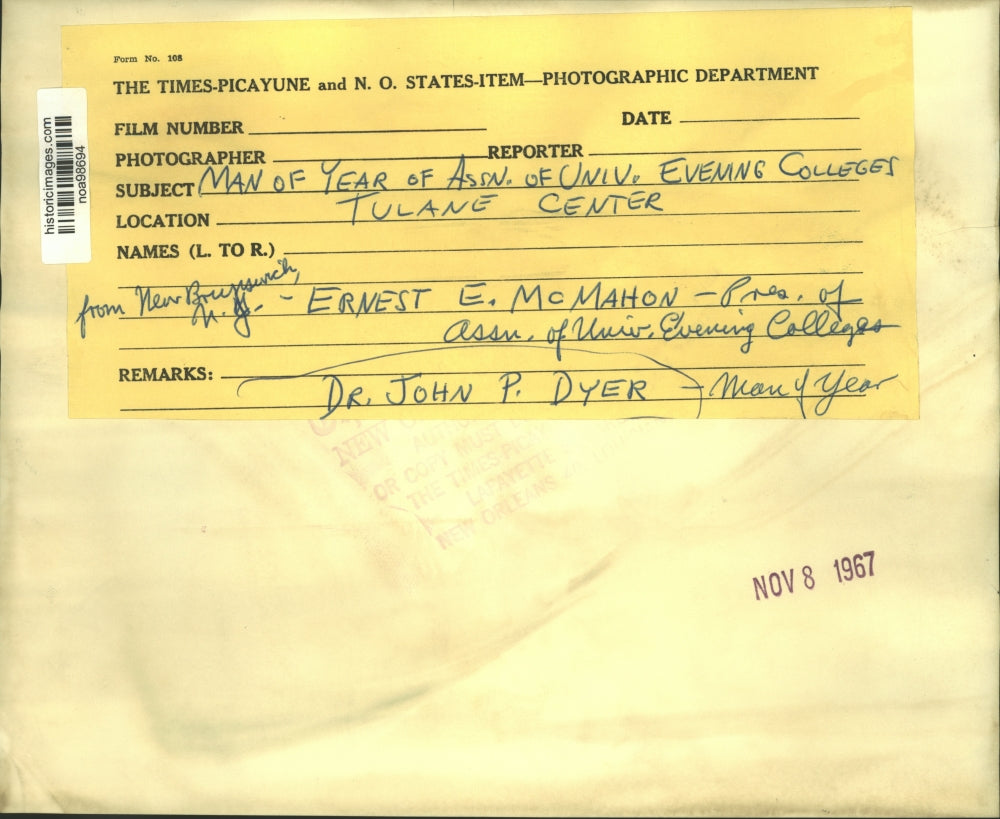 Form No. 108
THE TIMES-PICAYUNE and N. O. STATES-ITEM—PHOTOGRAPHIC DEPARTMENT
FILM NUMBER
DATE
PHOTOGRAPHER
REPORTER
SUBJECT MAN OF YEAR OF ASSN. OF UNIV. EVENING COLLEGES
LOCATION TULANE CENTER
NAMES (L. TO R.)
from New Brunswick,
N.J. - ERNEST E. MCMAHON - Pres. of
Assn. of Univ. Evening Colleges
REMARKS:
DR. JOHN P. DYER - Man of Year
historicimages.com
noa98694
NEW
OR COPY MUST
THE TIMES-PICAY
LAFAYETTE
NEW ORLEANS
NOV 8 1967